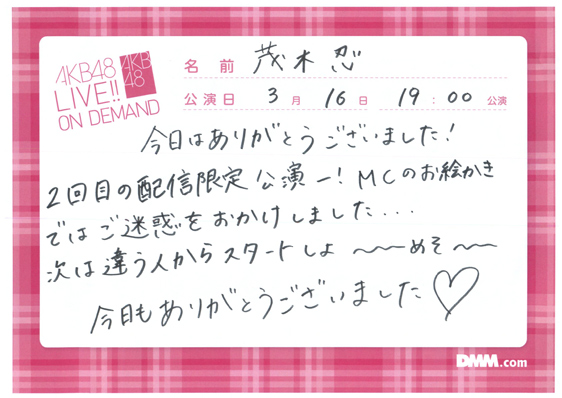 AKB48
LIVE!!
ON DEMAND
AKB
48
名前 茂木忍
公演日 3月 16日 19:00 公演
今日はありがとうございました!
2回目の配信限定公演ー! MCのお絵かき
ではご迷惑をおかけしました...
次は違う人からスタートしよ〜〜めそ〜〜
今日もありがとうございました♡
DMM.com